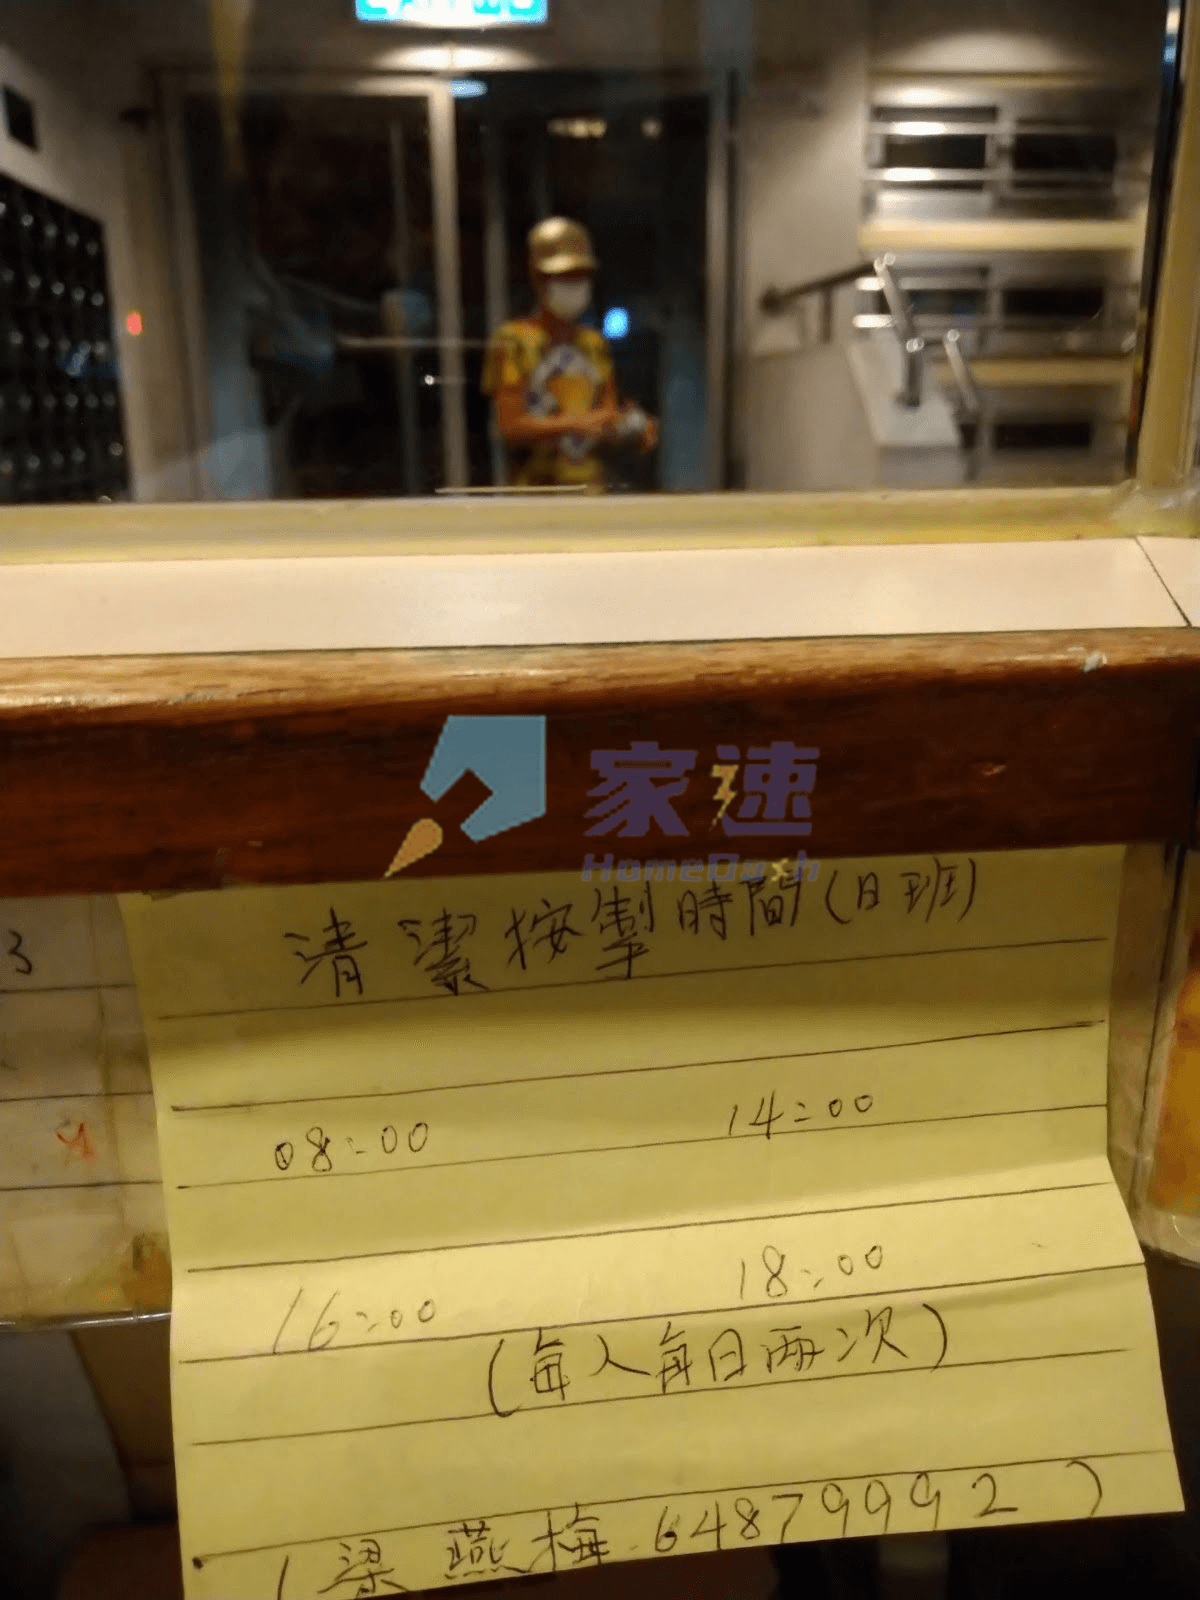 家速
HomeDash
清潔按掣時間(日班)
3
08:00 14:00
16:00 18:00
(每人每日兩次)
(梁燕梅.64879992)